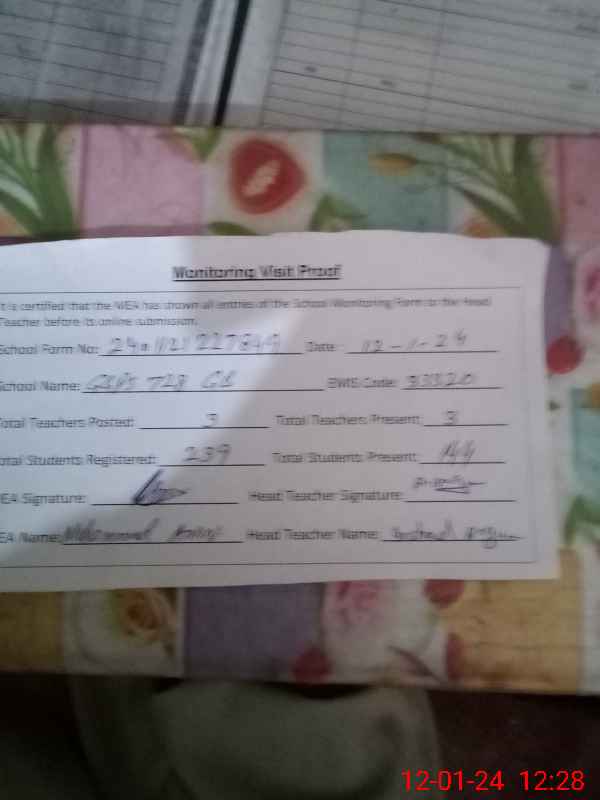 Monitoring Visit Proof
It is certified that the MEA has shown all entries of the School Monitoring Form to the Head
Teacher before its online submission.
School Form No: Date: 12-1-24
School Name: GBPS 728 GB EMIS Code: 33320
Total Teachers Posted: 3 Total Teachers Present: 3
Total Students Registered: 239 Total Students Present: 144
MEA Signature: Head Teacher Signature:
MEA Name: Mohammad Head Teacher Name:
12-01-24 12:28